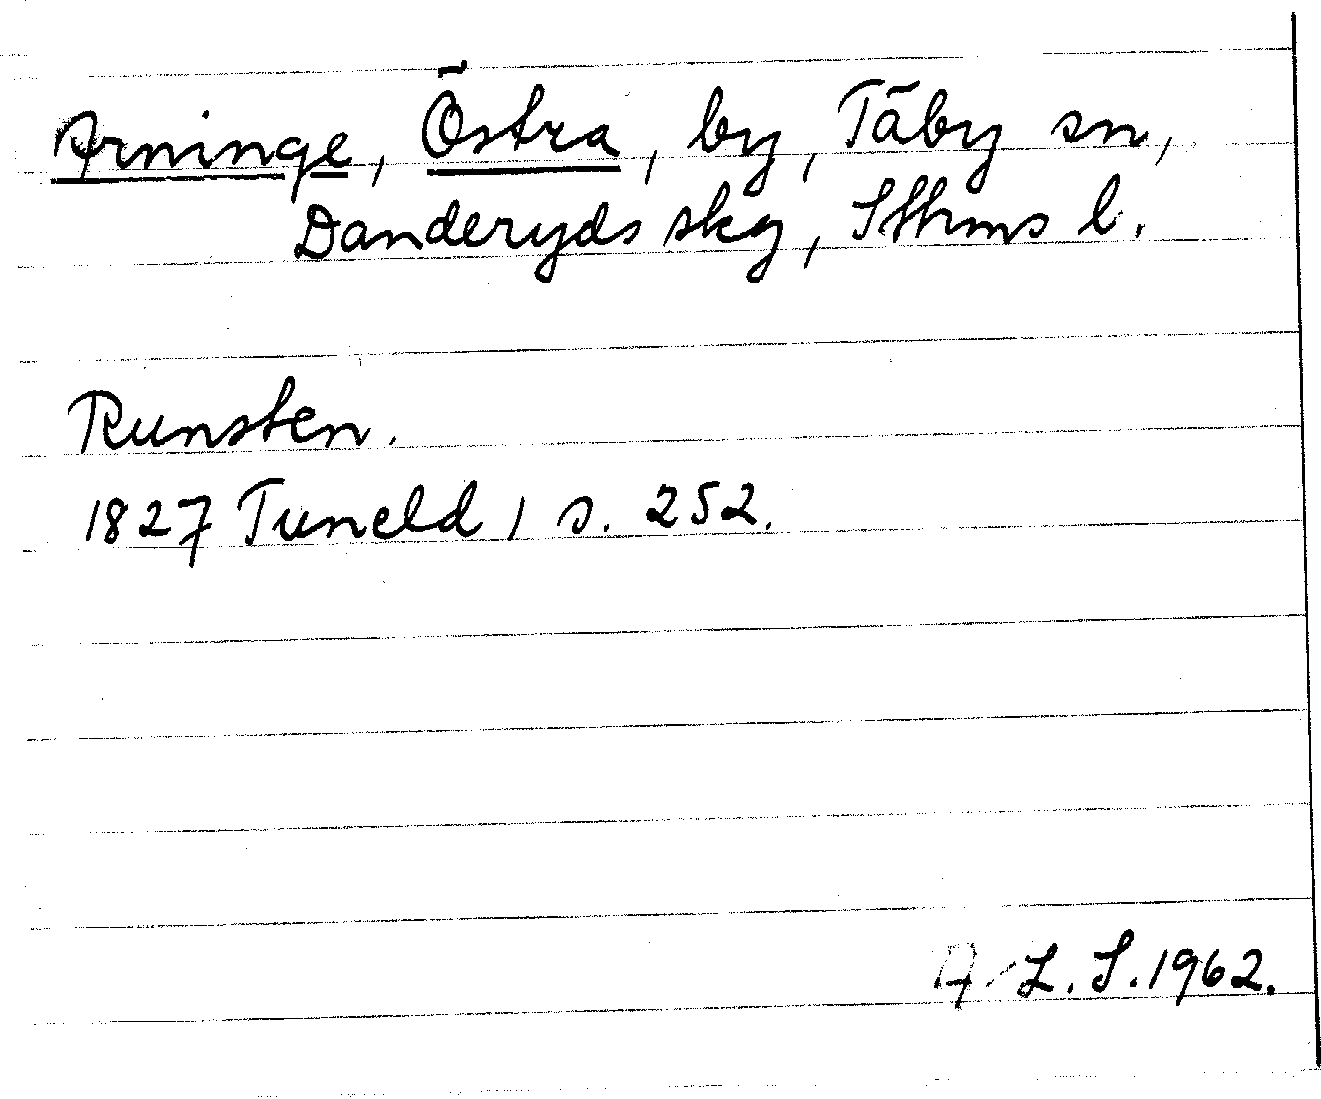 Arninge, Östra, by, Täby sn,
Danderyds skg, Sthms l.
Runsten.
1827 Tuneld 1 s. 252.
A-L. S. 1962.